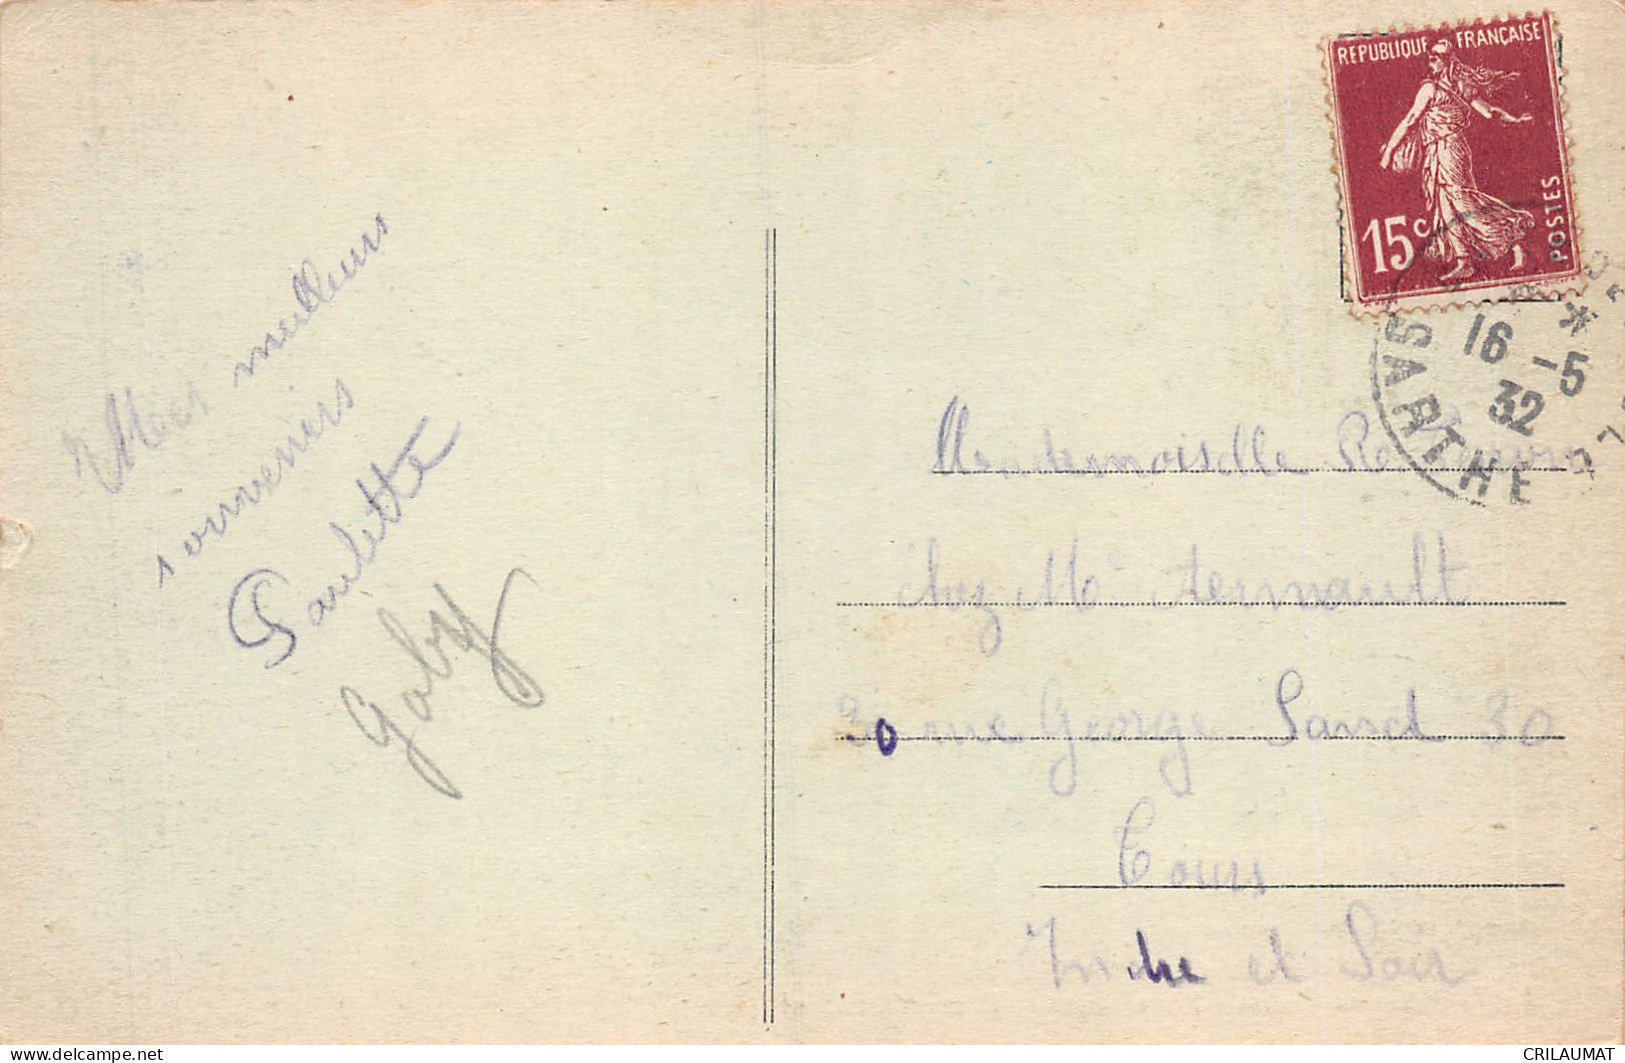 Mes meilleurs
souvenirs
Paulette
Gaby
REPUBLIQUE FRANÇAISE
15c
POSTES
16 -5
32
SARTHE
Mademoiselle
chez Mr
30 rue George Sand 30
Tours
Indre et Loir
www.delcampe.net
CRILAUMAT